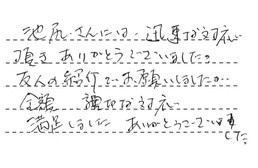 池尻さんには 迅速な対応
頂き ありがとうございました。
友人の紹介で お願いしましたが…
金額 調な対応
満足しました ありがとうございました